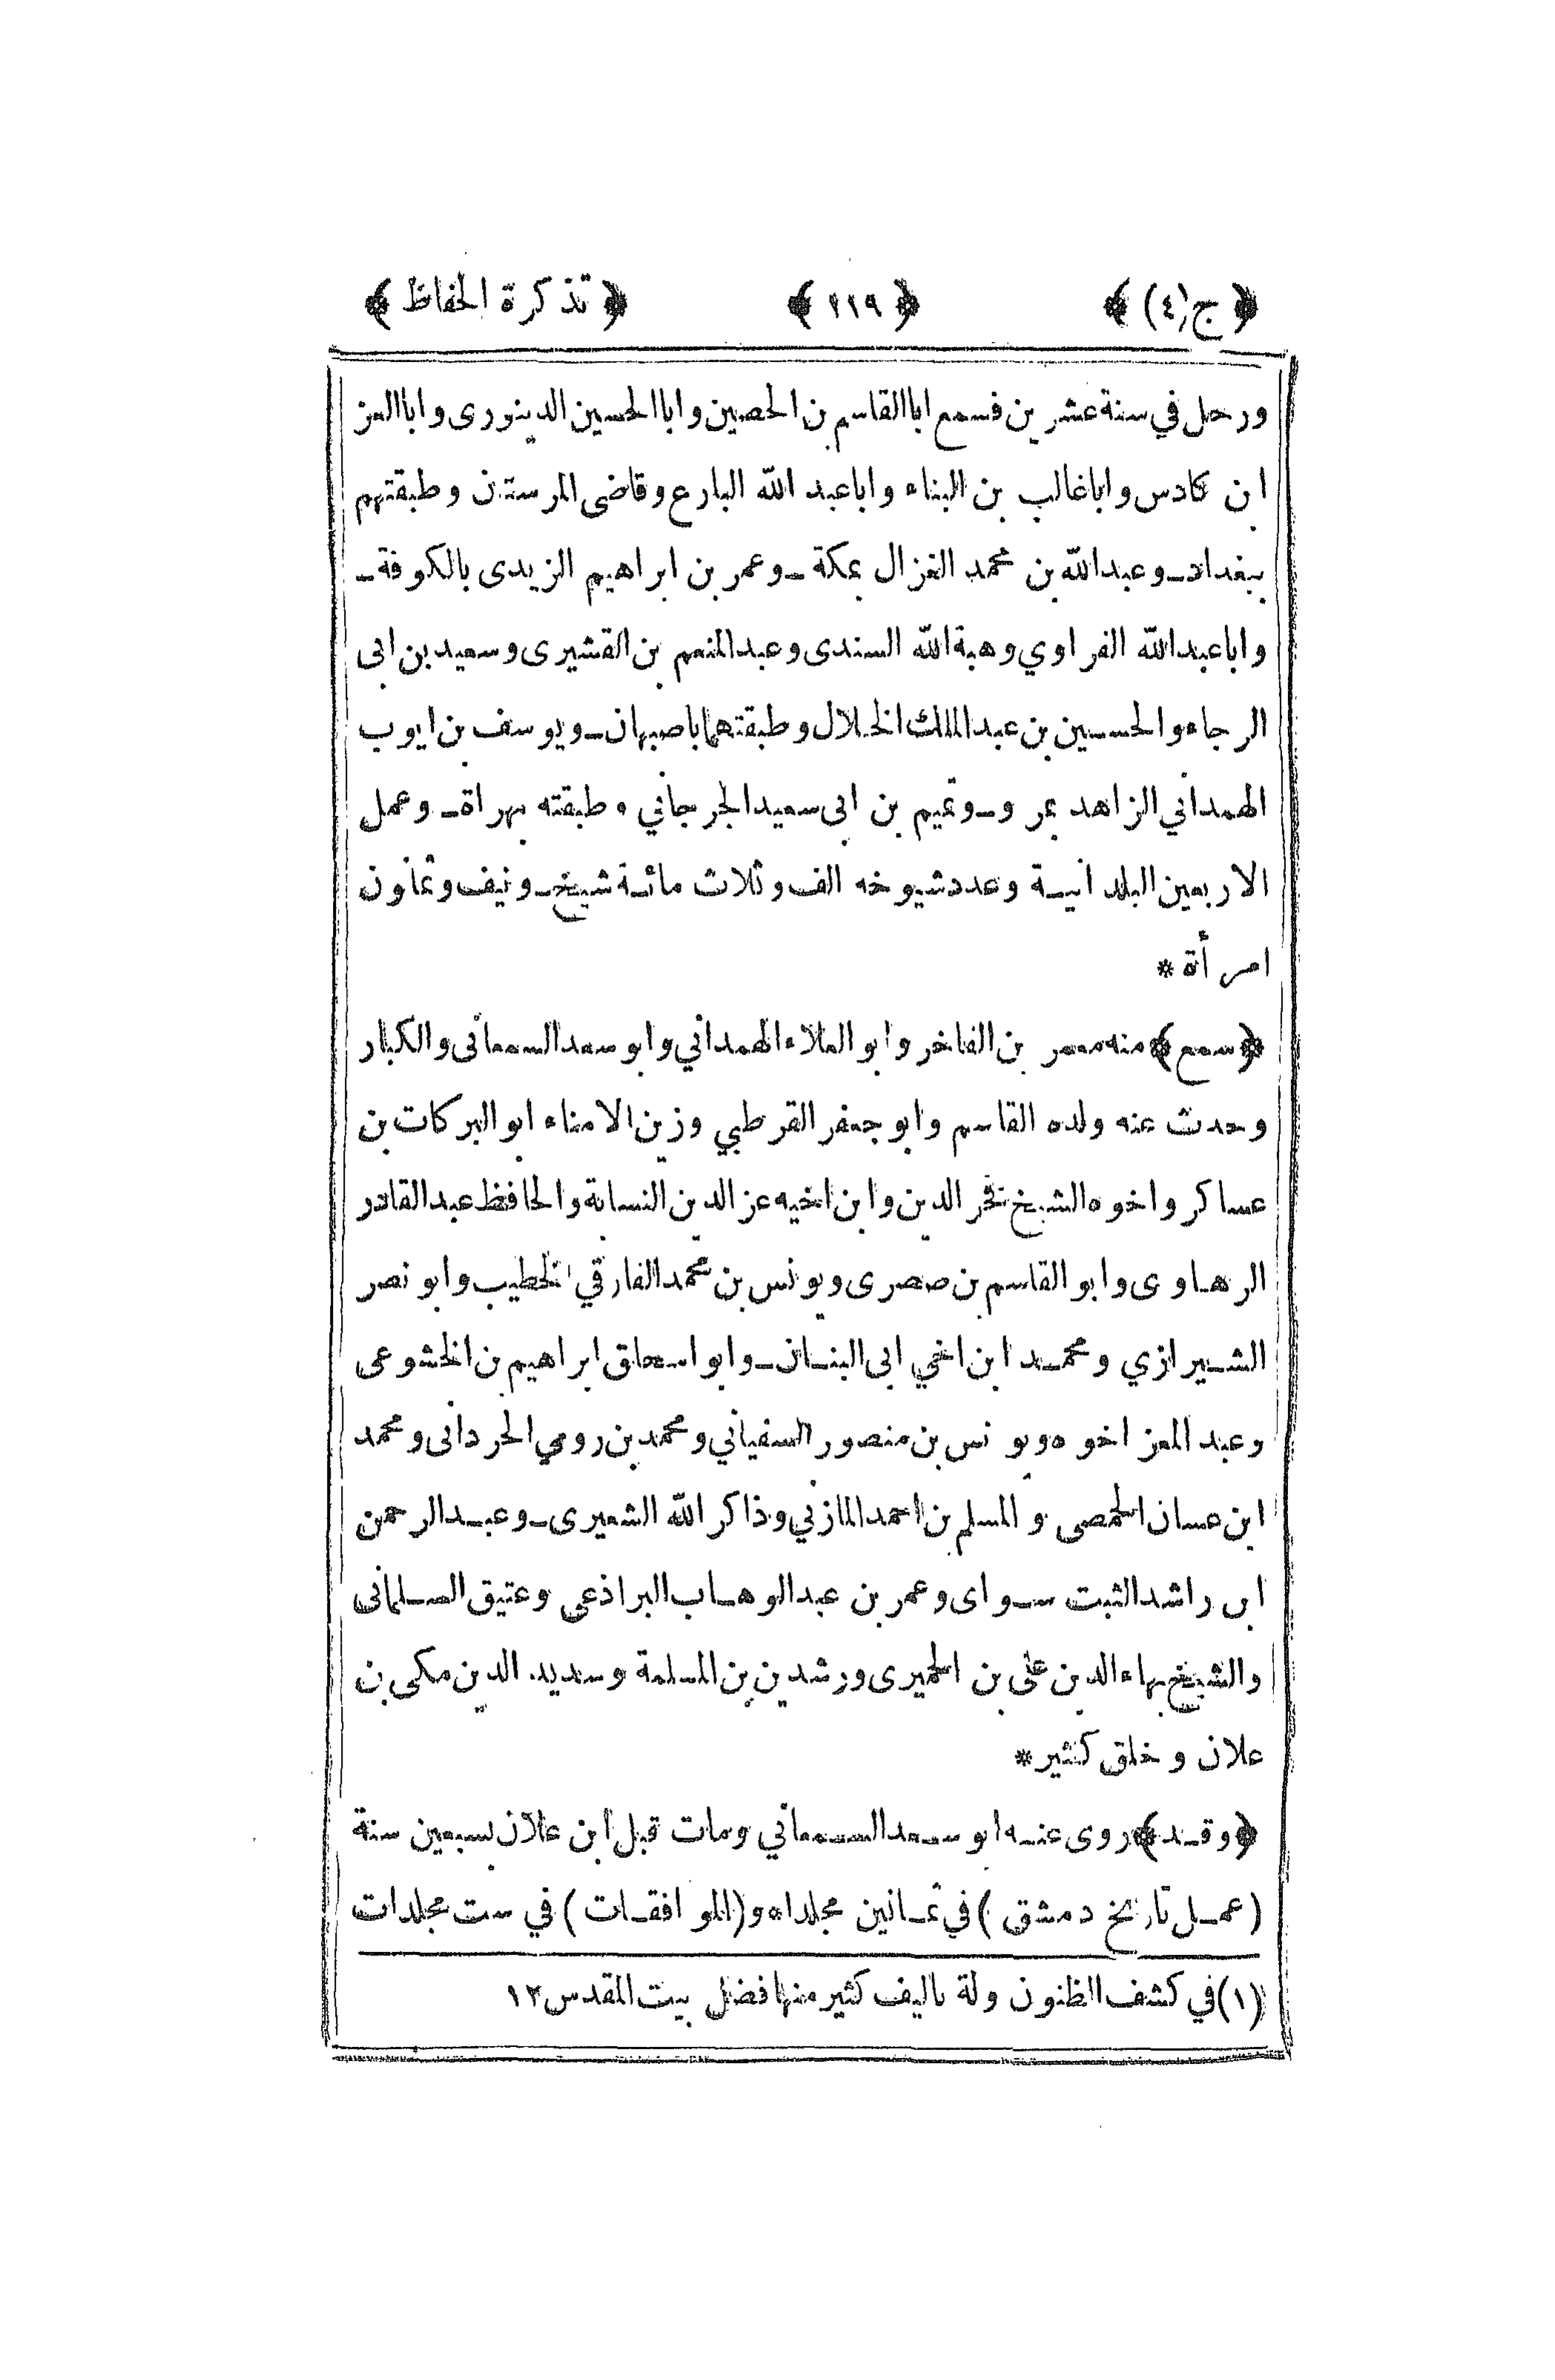 ﴿ ج(٤) ﴾ ﴿ ١١٩ ﴾ ﴿ تذكرة الحفاظ ﴾
ورحل في سنة عشرين فسمع ابا القاسم بن الحصين وابا الحسين الدينورى وابا العز
ابن كادس وابا غالب بن البناء وابا عبد الله البارع وقاضى المرستان وطبقتهم
ببغداد ـ وعبد الله بن محمد الغزال بمكة ـ وعمر بن ابراهيم الزيدى بالكوفة ـ
وابا عبد الله الفراوي وهبة الله السندى وعبد المنعم بن القشيرى وسعيد بن ابى
الرجاء والحسين بن عبد الملك الخلال وطبقتهما باصبهان ـ ويوسف بن ايوب
الهمداني الزاهد بمرو ـ وتميم بن ابى سعيد الجرجاني وطبقته بهراة ـ وعمل
الاربعين البلدانية وعدد شيوخه الف وثلاث مائة شيخ ـ ونيف وثمانون
امرأة *
﴿ سمع ﴾ منه معمر بن الفاخر وابو العلاء الهمداني وابو سعد السمعانى والكبار
وحدث عنه ولده القاسم وابو جعفر القرطبي وزين الامناء ابو البركات بن
عساكر واخوه الشيخ فخر الدين وابن اخيه عز الدين النسابة والحافظ عبد القادر
الرهاوى وابو القاسم بن صصرى ويونس بن محمد الفارقي الخطيب وابو نصر
الشيرازي ومحمد ابن اخي ابى البنان ـ وابو اسحاق ابراهيم بن الخشوعى
وعبد المعز اخوه ويونس بن منصور السفياني ومحمد بن رومي الجردانى ومحمد
ابن عسان الحمصى والمسلم بن احمد المازني وذاكر الله الشعيرى ـ وعبد الرحمن
ابن راشد الثبت سواى وعمر بن عبد الوهاب البراذعى وعتيق السلمانى
والشيخ بهاء الدين على بن الجميرى ورشد ين بن المسلمة وسديد الدين مكى بن
علان وخلق كثير *
﴿ وقد ﴾ روى عنه ابو سعد السمعاني ومات قبل ابن علان بسبعين سنة
(عمل تاريخ دمشق ) في ثمانين مجلدا و(الموافقات ) في ست مجلدات
(١) في كشف الظنون ولة تاليف كثير منها فضل بيت المقدس ١٢